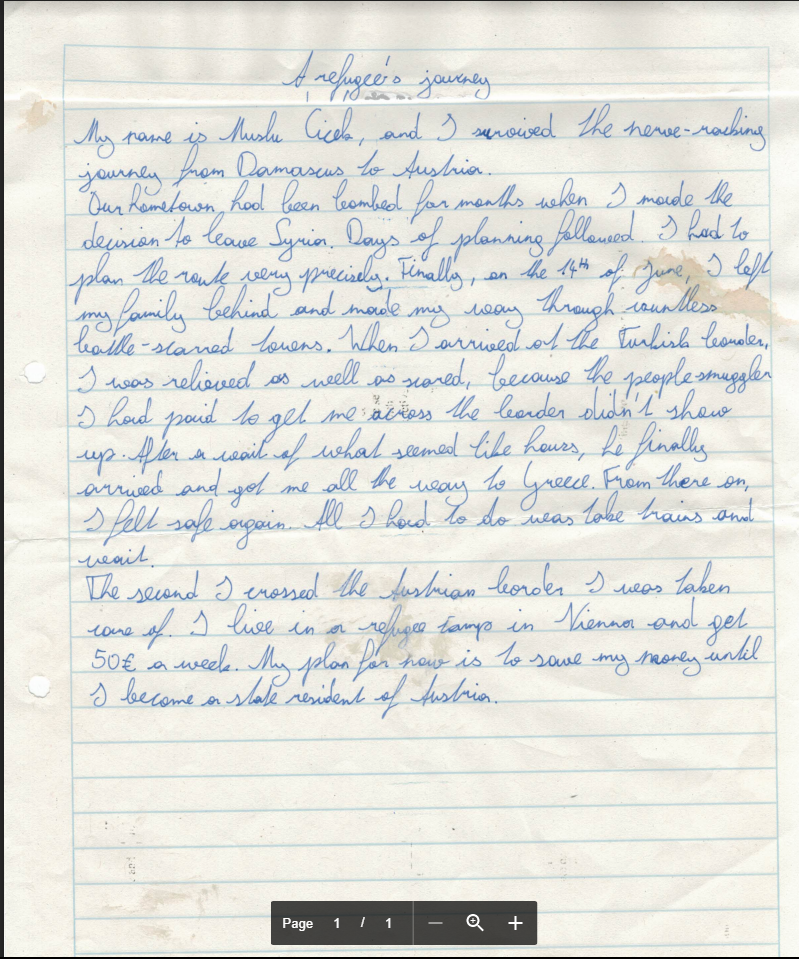 A refugee's journey
My name is Muslu Cicek, and I survived the nerve-racking
journey from Damascus to Austria.
Our hometown had been bombed for months when I made the
decision to leave Syria. Days of planning followed. I had to
plan the route very precisely. Finally, on the 14th of June, I left
my family behind and made my way through countless
battle-scarred towns. When I arrived at the Turkish border,
I was relieved as well as scared, because the people smuggler
I had paid to get me across the border didn't show
up. After a wait of what seemed like hours, he finally
arrived and got me all the way to Greece. From there on,
I felt safe again. All I had to do was take trains and
wait.
The second I crossed the Austrian border I was taken
care of. I live in a refugee camp in Vienna and get
50€ a week. My plan for now is to save my money until
I become a state resident of Austria.
Page 1 / 1